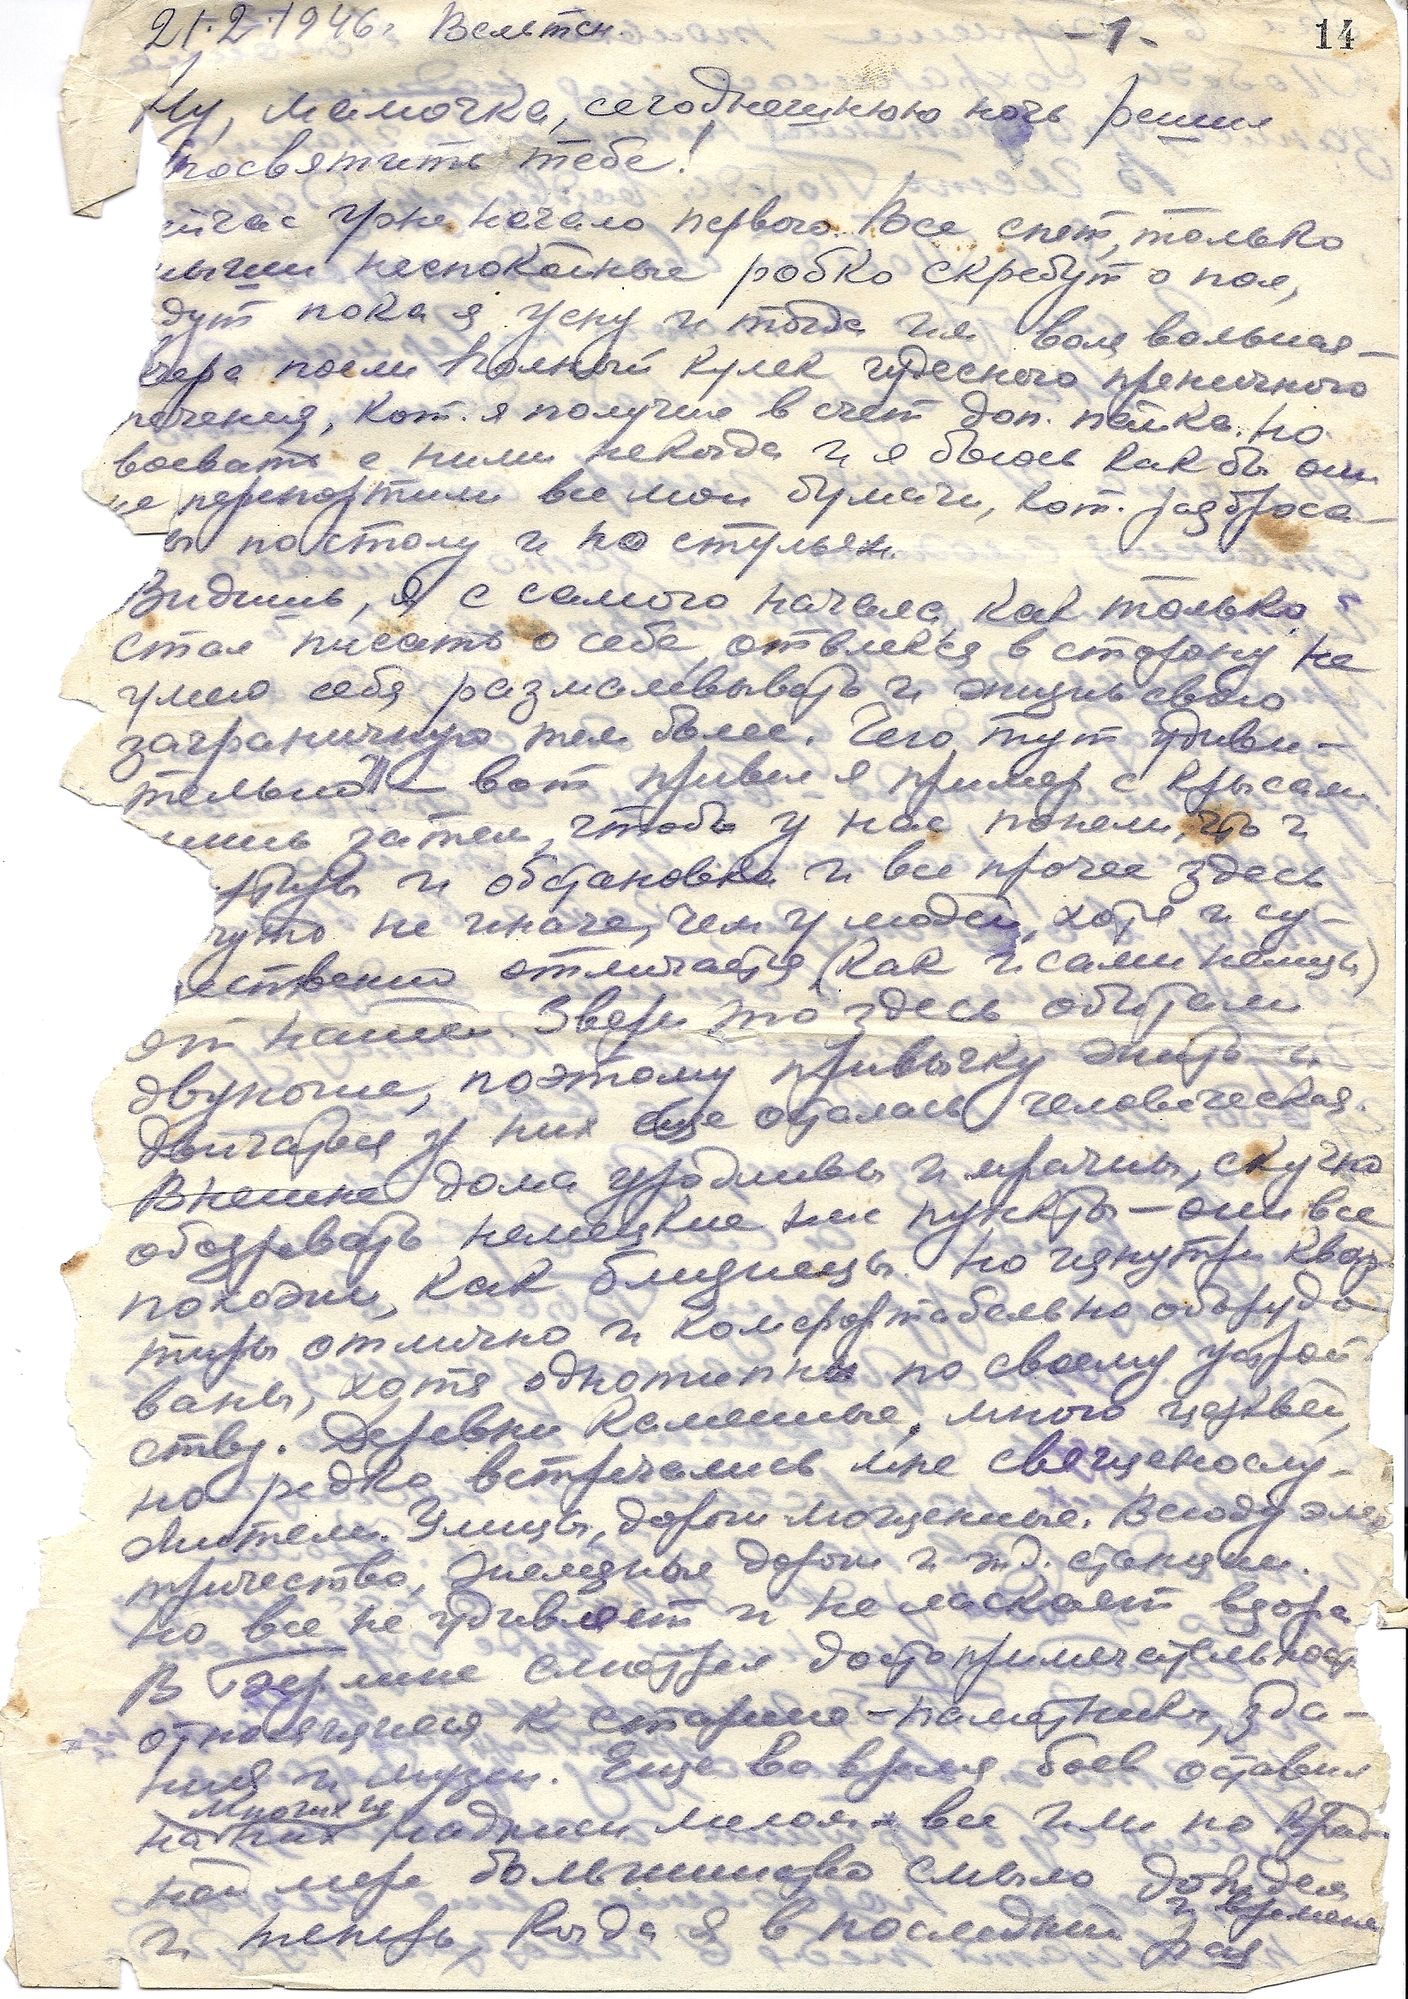 21.2.1946г Вельтен. -1- 14
Ну, мамочка, сегоднешнюю ночь решил
посвятить тебе!
йчас уже начало первого. Все спят, только
мыши неспокойные робко скребут о пол,
ждут пока я усну и тогда им воля вольная –
вчера поели полный кулек чудесного пшеничного
печения, кот. я получил в счет доп. пайка. Но
воевать с ними некогда и я боюсь как бы они
не перепортили все мои бумаги, кот. разброса-
ны по столу и по стульям.
Видишь, я с самого начала, как только
стал писать о себе, отвлекся в сторону. Не
умею себя размалевывать и жизнь свою
заграничную тем более. Чего тут удиви-
тельного – вот привел я пример с крысами
лишь затем, чтобы у нас поняли, что и
и обстановка и все прочее здесь
не иначе, чем у людей, хотя и су-
щественно отличается (как и сами немцы)
от нашей. Звери то здесь обитали
двуногие, поэтому привычку жить и
двигаться у них еще осталась человеческая.
Внешне дома уродливы и мрачны, скучно
обозревать немецкие нас. пункты – они все
похожи, как близнецы. Но изнутри квар-
тиры отлично и комфортабельно оборудо-
ваны, хотя однотипны по своему устрой-
ству. Деревни каменные, много церквей,
но редко встречались мне священослу-
жители. Улицы, дороги мощенные. Всюду элек-
тричество, железные дороги и ж.д. станции.
Но все не удивляет и не ласкает взора
В Берлине смотрел достопримечательност
относящиеся к старине – памятники, зда-
ния и музеи. Еще во время боев оставил
многих из
на них надписи мелом – все или по край-
ней мере большинство смыло дождем
и временем
и теперь, когда я в последний раз